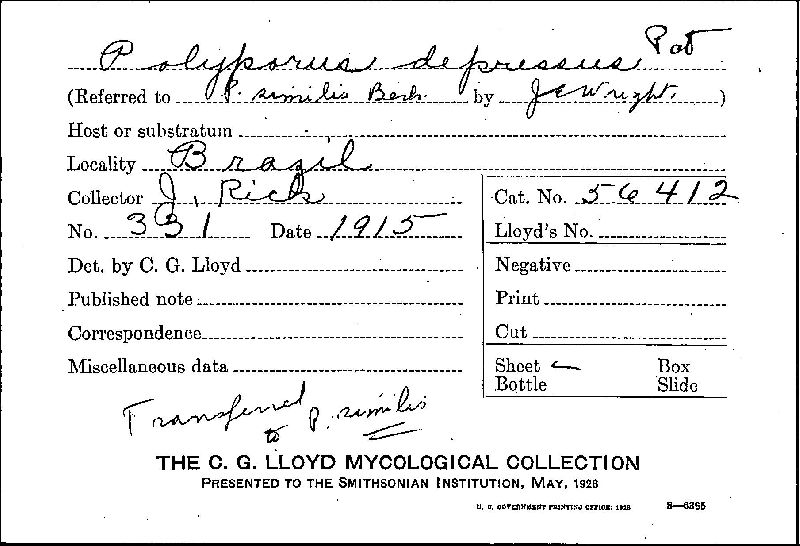 Polyporus depressus Pat
(Referred to P. similis Berk. by J E Wright.)
Host or substratum
Locality Brazil
Collector J. Rick
No. 331 Date 1915
Det. by C. G. Lloyd
Published note
Correspondence
Miscellaneous data
Cat. No. 56412
Lloyd's No.
Negative
Print
Cut
Sheet Box
Bottle Slide
Transferred
to P. similis
THE C. G. LLOYD MYCOLOGICAL COLLECTION
PRESENTED TO THE SMITHSONIAN INSTITUTION, MAY, 1928
U. S. GOVERNMENT PRINTING OFFICE: 1928 8—6395